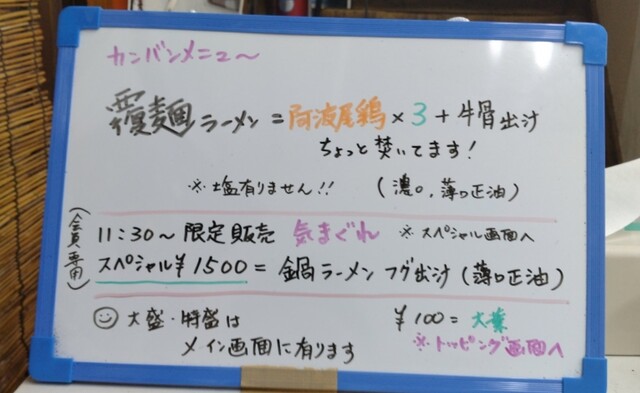 カンバンメニュ～
覆麺ラーメン=阿波尾鶏×3+牛骨出汁
ちょっと焚いてます!
※塩有りません!! (濃口,薄口正油)
(会員専用)
11:30～限定販売 気まぐれ ※スペシャル画面へ
スペシャル¥1500=鍋ラーメン フグ出汁(薄口正油)
大盛・特盛は
メイン画面に有ります
¥100=大葉
※トッピング画面へ